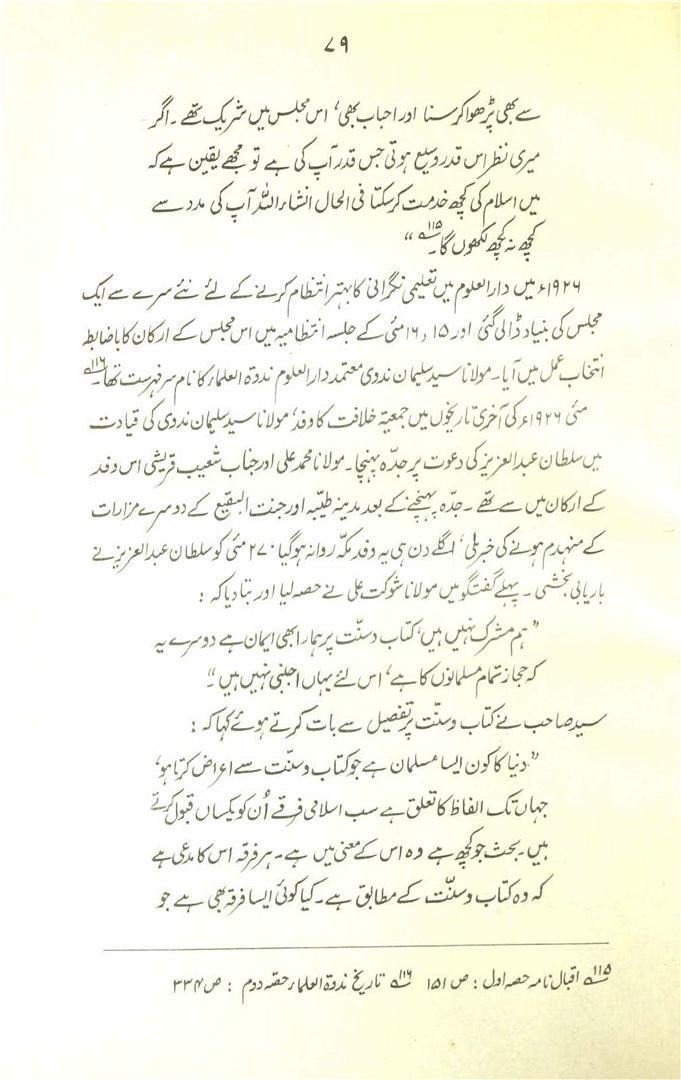 ۷۹
سے بھی پڑھوا کر سنا اور احباب بھی، اس مجلس میں شریک تھے۔ اگر
میری نظر اس قدر وسیع ہوتی جس قدر آپ کی ہے تو مجھے یقین ہے کہ
میں اسلام کی کچھ خدمت کر سکتا فی الحال انشاء اللہ آپ کی مدد سے
کچھ نہ کچھ لکھوں گا۔ ۱۱۵؎ “
۱۹۲۶ء میں دارالعلوم میں تعلیمی نگرانی کا بہتر انتظام کرنے کے لئے نئے سرے سے ایک
مجلس کی بنیاد ڈالی گئی اور ۱۵، ۱۶ مئی کے جلسہ انتظامیہ میں اس مجلس کے ارکان کا باضابطہ
انتخاب عمل میں آیا۔ مولانا سید سلیمان ندوی معتمد دارالعلوم ندوۃ العلماء کا نام سرفہرست تھا۔ ۱۱۶؎
مئی ۱۹۲۶ء کی آخری تاریخوں میں جمعیۃ خلافت کا وفد، مولانا سید سلیمان ندوی کی قیادت
میں سلطان عبدالعزیز کی دعوت پر جدّہ پہنچا۔ مولانا محمد علی اور جناب شعیب قریشی اس وفد
کے ارکان میں سے تھے۔ جدّہ پہنچنے کے بعد مدینہ طیّبہ اور جنت البقیع کے دوسرے مزارات
کے منہدم ہونے کی خبر ملی، اگلے دن ہی یہ وفد مکّہ روانہ ہوگیا۔ ۲۷ مئی کو سلطان عبدالعزیز نے
باریابی بخشی۔ پہلے گفتگو میں مولانا شوکت علی نے حصہ لیا اور بتا دیا کہ :
” ہم مشرک نہیں ہیں، کتاب و سنّت پر ہمارا بھی ایمان ہے دوسرے یہ
کہ حجاز تمام مسلمانوں کا ہے، اس لئے یہاں اجنبی نہیں ہیں۔ “
سید صاحب نے کتاب و سنّت پر تفصیل سے بات کرتے ہوئے کہا کہ :
” دنیا کا کون ایسا مسلمان ہے جو کتاب و سنّت سے اعراض کرتا ہو،
جہاں تک الفاظ کا تعلق ہے سب اسلامی فرقے اُن کو یکساں قبول کرتے
ہیں۔ بحث جو کچھ ہے وہ اس کے معنی میں ہے۔ ہر فرقہ اس کا مدعی ہے
کہ وہ کتاب و سنّت کے مطابق ہے۔ کیا کوئی ایسا فرقہ بھی ہے جو
۱۱۵؎ اقبال نامہ حصہ اول : ص ۱۵۱ ۱۱۶؎ تاریخ ندوۃ العلماء حصّہ دوم : ص ۳۳۴